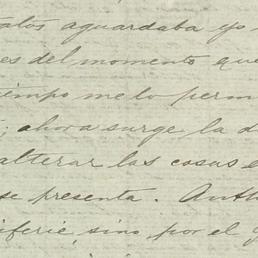 alos aguardaba yo
es del momento que
iempo me lo perm
; ahora surge la d
alterar las cosas e
se presenta. Auth
iferie, sino por el g